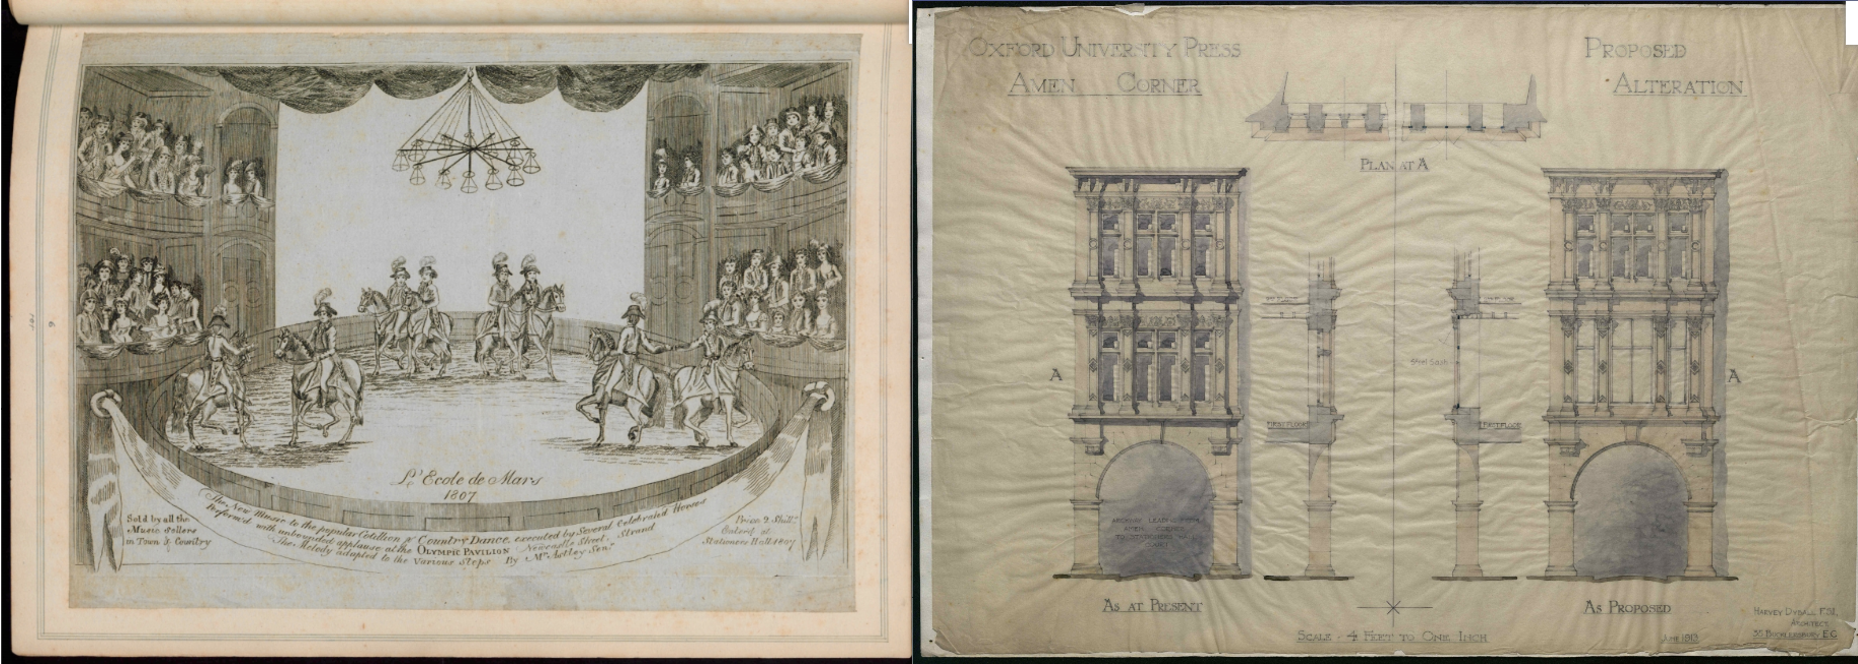 L'Ecole de Mars
1807
The New Music to the popular Cotillion & Country Dance, executed by Several Celebrated Horses
Performed with unbounded applause at the OLYMPIC PAVILION Newcastle Street, Strand
The Melody adapted to the Various Steps By Mr. Astley Senr.
Sold by all the
Music Sellers
in Town & Country
Price 2 Shills.
Enter'd at
Stationers Hall 1807
OXFORD UNIVERSITY PRESS
AMEN CORNER
PROPOSED
ALTERATION
PLAN AT A
A
A
Steel Sash
FIRST FLOOR
FIRST FLOOR
ARCHWAY LEADING FROM
AMEN CORNER
TO STATIONERS HALL
COURT
AS AT PRESENT
AS PROPOSED
SCALE - 4 FEET TO ONE INCH
JUNE 1913
HARVEY DYBALL F.S.I.
ARCHITECT
BUCKLERSBURY E.C.